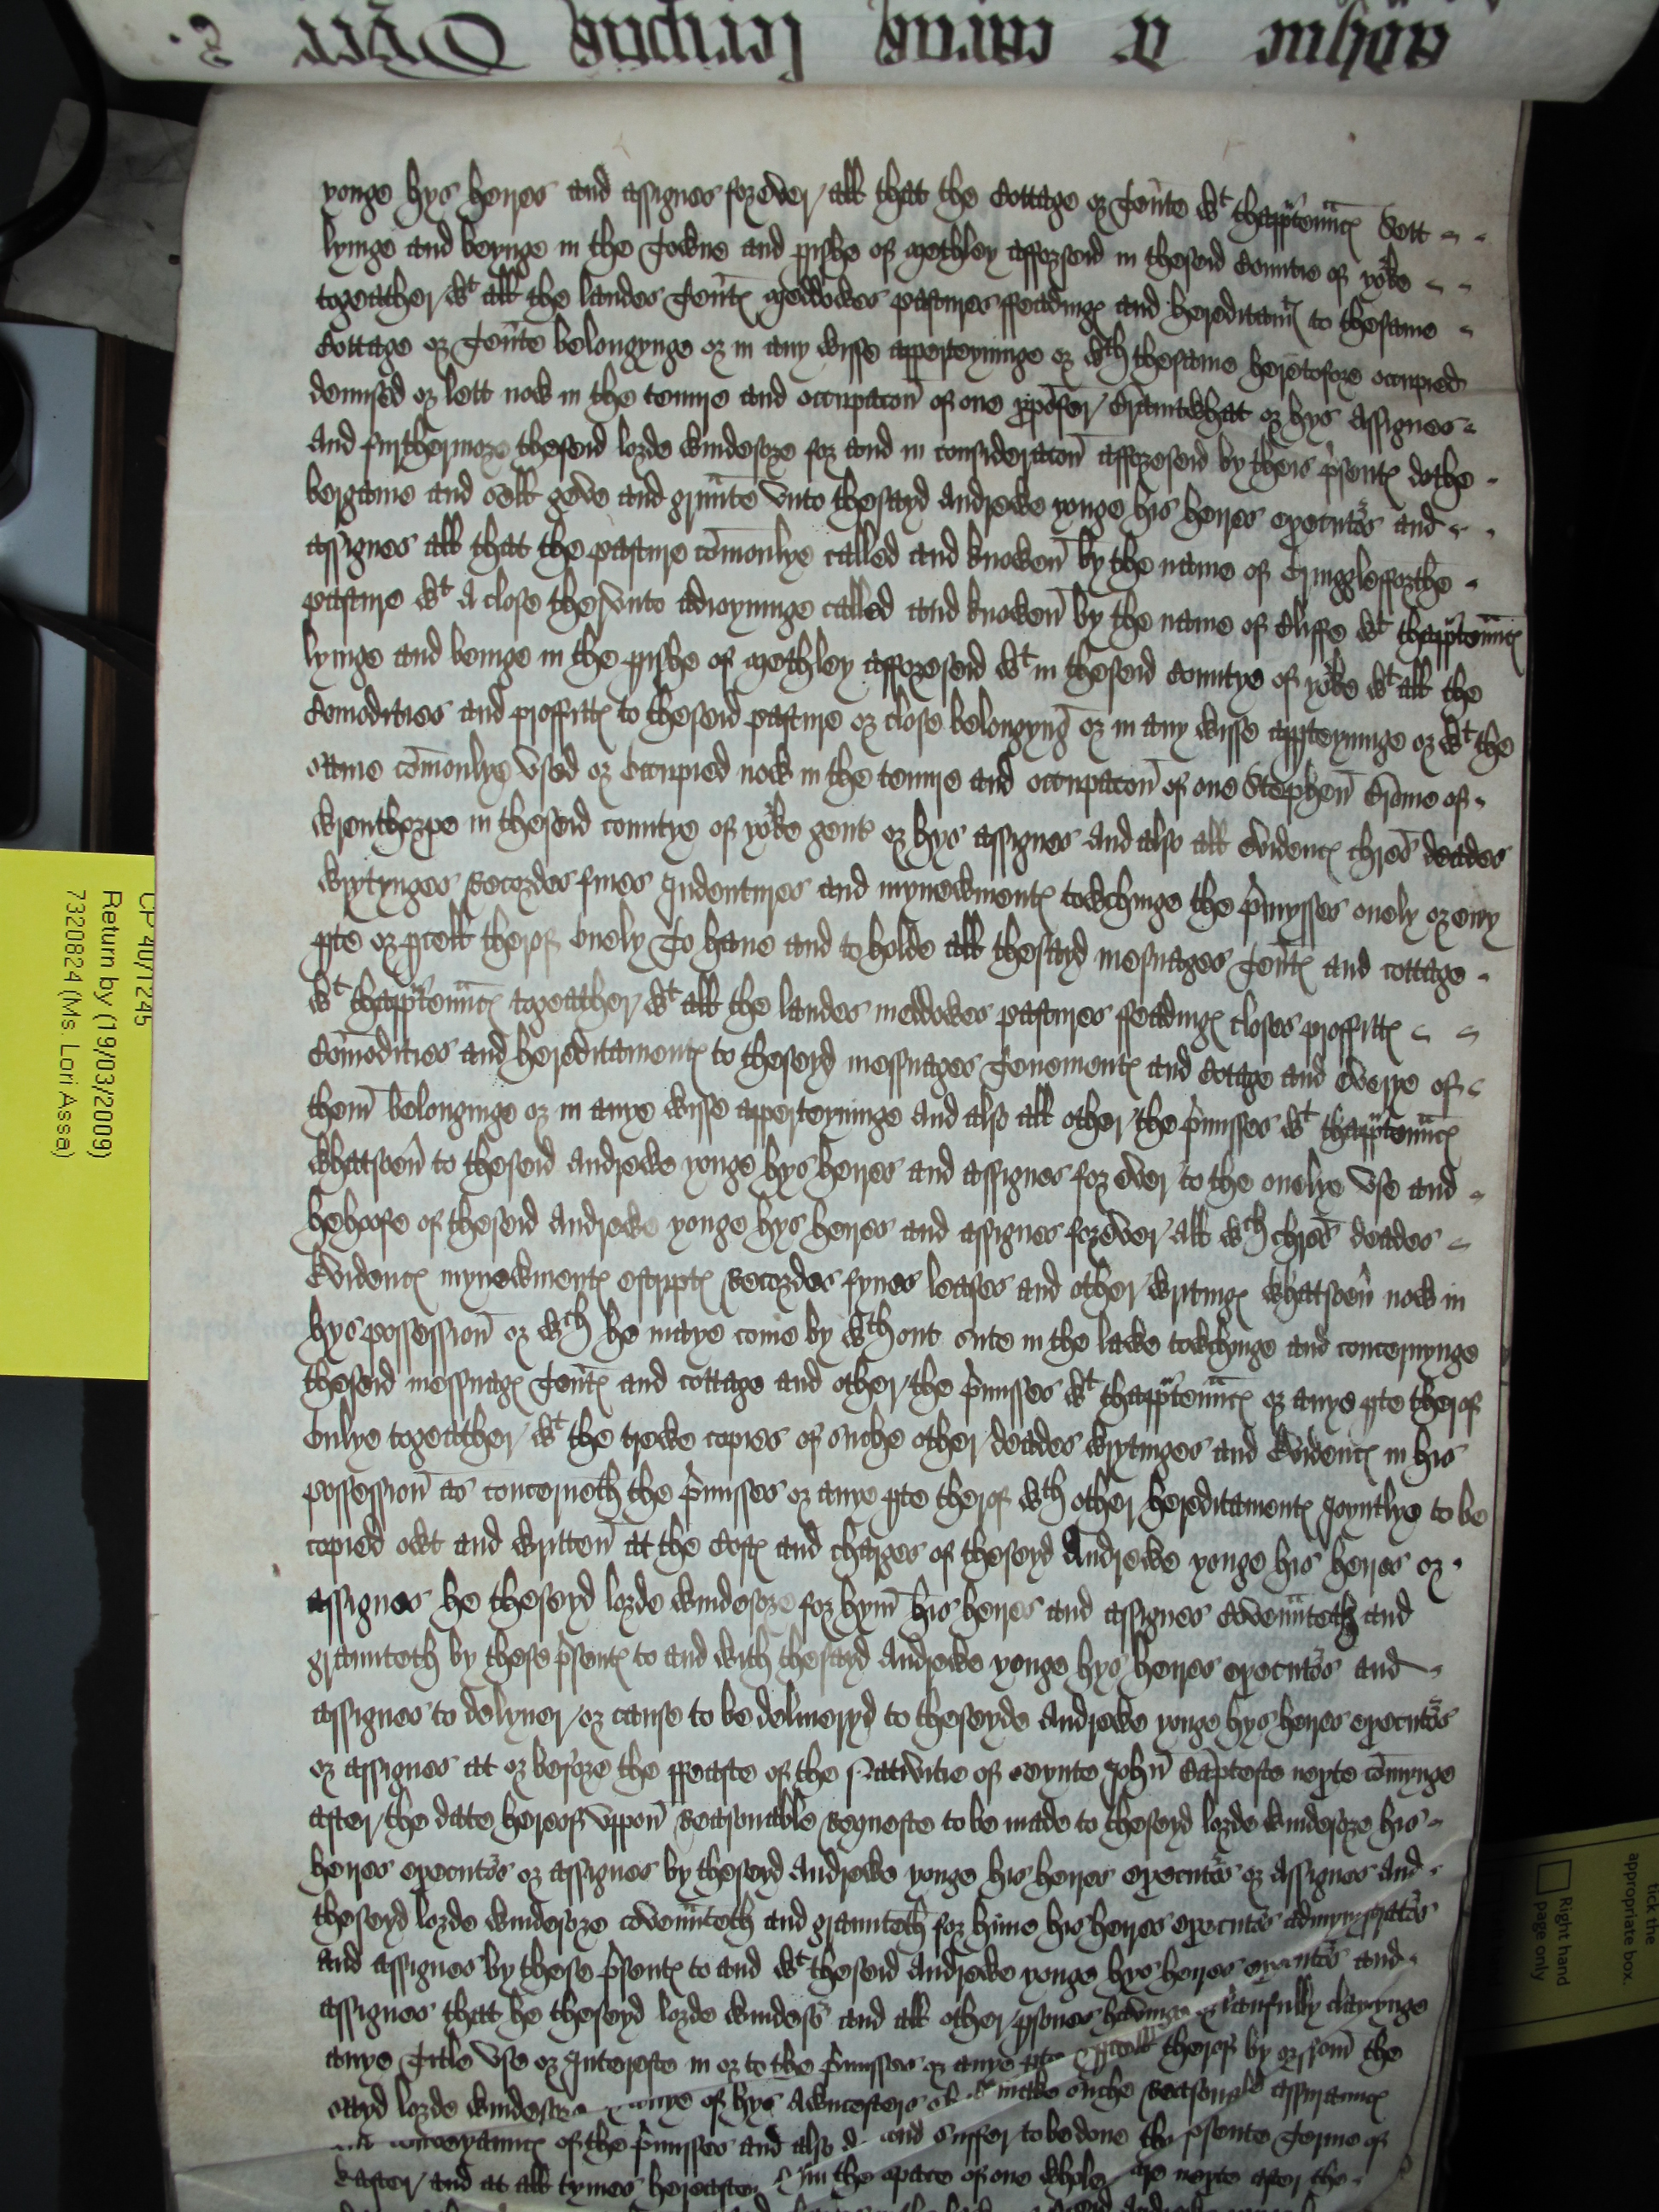 yonge hys heyres and assignes forever / all that the Cottage or Tente wt thapptennc Sett
lyinge and beynge in the Towne and pishe of Methley afforseid in theseid Countie of yorke
togeather / wt all the landes Tentc Meddowes pastures ffeadingc and hereditamtc to thesame
Cottage or Tente belongynge or in any wisse apperteyninge or wth thesame heretofore occupied
demised or lett now in the tenure and occupacon of one xpofer / or hys Assignes
And furthermore theseid lorde windesore for and in consideracon afforeseid by theis psentc dothe
bergaine and sell geve and grunte unto thesayd Andrewe yonge his heyres executors and
assignes all that the pasture comonlye called and knowen by the name of
pasture wt A close therunto adioyninge called and knowen by the name of Cliffe wt thapptennc
lyinge and beinge in the pishe of Methley afforeseid wt in theseid Countye of yorke wt all the
Comodities and proffittc to theseid pasture or close belongyng or in any wisse appteyninge or wt the
same comonlye used or occupied now in the tenure and occupacon of one Stephen of
wrenthorpe in theseid countye of yorke gent or hys assignes And also all Evidencc chres deades
wrytynges Recordes fines Indentures and mynewmentc towchinge the pmysses onely or eny
pte or pcell therof onely To have and to holde all thesayd mesuages Tentc and cottage
wt thapptennc togeather / wt all the landes meddowes pastures ffeadingc closes proffittc
Comodities and hereditamentc to theseyd messuages Tenementc and Cotage and Everye of
them belonginge or in anye wisse apperteyninge And also all other / the pmisses wt thapptennc
whatsoever to theseid Andrewe yonge hys heyres and assignes for ever to the onelye use and
behoofe of theseid Andrewe yonge hys heyres and assignes forever / All wch chres deades
Evidencc mynewmentc escriptc Recordes fynes leases and other / writingc whatsoever now in
hys possession or wch he maye come by wthout sute in the lawe towchynge and concernynge
theseid messuagc Tentc and cottage and other / the pmisses wt thapptennc or anye pte therof
Onlye togeather / wt the trewe copies of suche other / deades wrytinges and Evidencc in his
possession as concerneth the pmisses or anye pte therof wth other hereditamentc Joyntlye to be
copied owt and written at the Costc and charges of theseyd Andrewe yonge his heyres or
assignes he theseyd lorde windesore for hym his heyres and assignes Covennteth and
graunteth by these psentc to and with thesayd Andrewe yonge hys heyres executors and
assignes to delyver / or cause to be deliveryd to theseyde Andrewe yonge hys heyres executors
or assignes at or before the ffeaste of the Nativitie of seynte John Baptiste nexte comynge
after / the date hereof uppon Reasonable Requeste to be made to theseyd lorde windesore his
heyres executors or assignes by theseyd Andrewe yonge his heyres executors or Assignes And
theseyd lorde windesore covennteth and graunteth for hime his heyres executors admynystrators
and assignes by these psentc to and wt theseid Andrewe yonge hys heyres executors and
assignes that he theseyd lorde windesor and all other / psones havinge or laufully claymynge
anye Title Use or Intereste in or to the pmisses or anye pte therof by or from the
sayd lorde windesore anye of hys Awncesters make suche Reasonable assurauncc
conveyauncc of the pmisses and also and suffer to be done psente Terme of
Easter / and at all tymes hereafter the space of one whole nexte after the
CP 40/1245
Return by (19/03/2009)
7320824 (Ms. Lori Assa)
tick the
appropriate box.
Right hand
page only